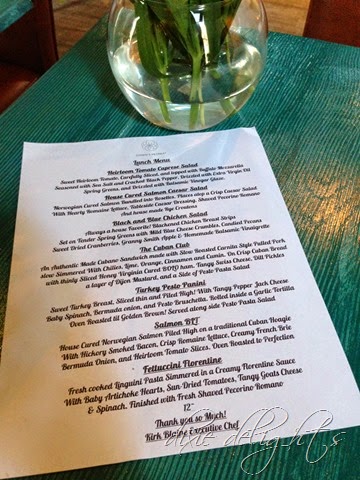 Lunch Menu
Heirloom Tomato Caprese Salad
Sweet Heirloom Tomato, Carefully Sliced, and topped with Buffalo Mozzarella
Seasoned with Sea Salt and Cracked Black Pepper. Drizzled with Extra Virgin Oil
Spring Greens, and Drizzled with Balsamic Vinegar Glaze.
House Cured Salmon Caesar Salad
Norwegian Cured Salmon Bundled into Rosettes. Places atop a Crisp Caesar Salad
With Hearty Romaine lettuce, Tableside Caesar Dressing, Shaved Pecorino Romano
And house made Rye Croutons
Black and Blue Chicken Salad
Always a house Favorite! Blackened Chicken Breast Strips
Set on Tender Spring Greens with Mild Blue Cheese Crumbles, Candied Pecans
Sweet Dried Cranberries, Granny Smith Apple & Homemade Balsamic Vinaigrette
The Cuban Club
An Authentic Made Cubano Sandwich made with Slow Roasted Carnita Style Pulled Pork
slow Simmered With Chilies, lime, Orange, Cinnamon and Cumin. On Crisp Cuban Bread
with thinly Sliced Henry Virginia Cured BOLD ham, Tangy Swiss Cheese, Dill Pickles
a layer of Dijon Mustard, and a Side of Pesto Pasta Salad
Turkey Pesto Panini
Sweet Turkey Breast, Sliced thin and Piled High! With Tangy Pepper Jack Cheese
Baby Spinach, Bermuda onion, and Pesto Bruschetta. Rolled inside a Garlic Tortilla
Oven Roasted til Golden Brown! Served along side Pesto Pasta Salad
Salmon BLT
House Cured Norwegian Salmon Piled High on a traditional Cuban Hoagie
With Hickory Smoked Bacon, Crisp Romaine lettuce, Creamy French Brie
Bermuda Onion, and Heirloom Tomato Slices. Oven Roasted to Perfection
Fettuccini Florentine
Fresh cooked Linguini Pasta Simmered in a Creamy Florentine Sauce
With Baby Artichoke Hearts, Sun-Dried Tomatoes, Tangy Goats Cheese
& Spinach. Finished with Fresh Shaved Pecorino Romano
12"
Thank you so Much!
Kirk Blaine Executive Chef
dixie delights